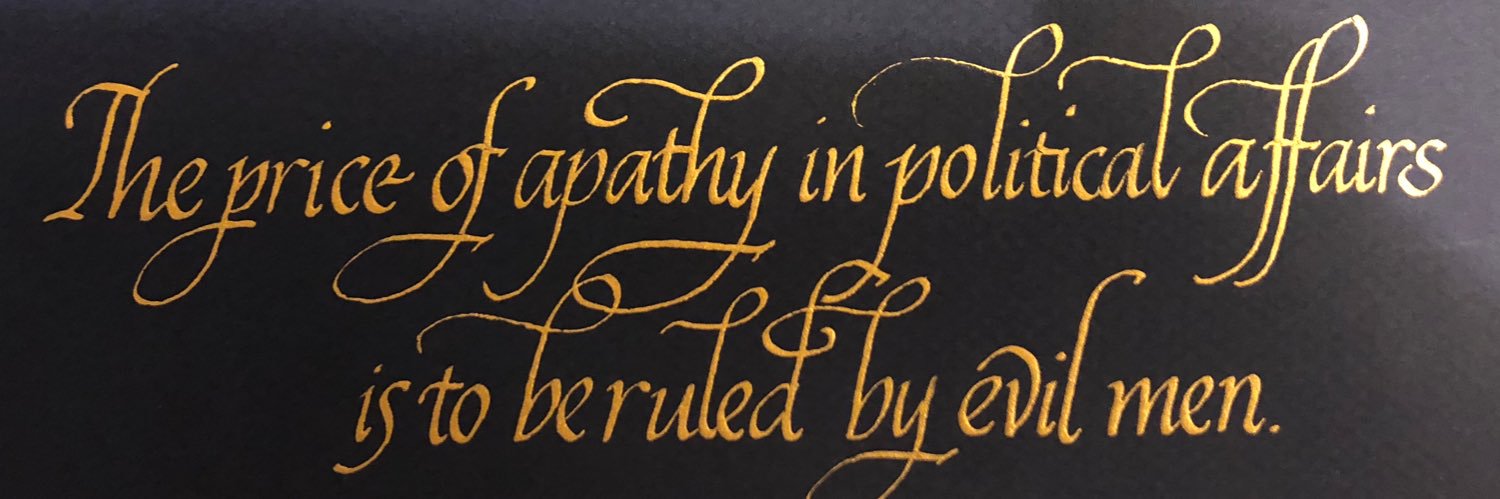 The price of apathy in political affairs
is to be ruled by evil men.